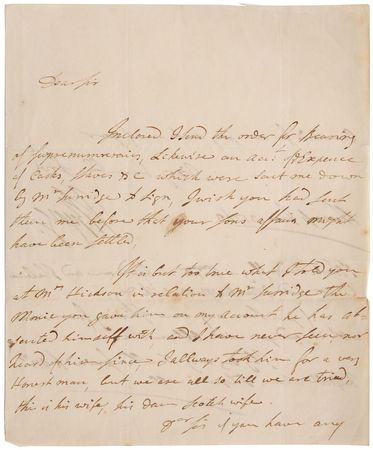 Dear Sir
Inclosed I send the order for Bearing
of Supernumeraries, Likewise an Acct. of Expence
of Casks, Hives &C which were sent me down
by Mr. Surridge to sign, I wish you had sent
them me before that your sons affairs might
have been settled,
It is but too true what I told you
at Mrs. Hickson in relation to Mr. Surridge the
Monie you gave him on my account he has ab-
sented himself with and I have never seen nor
heard of him since I allways took him for a very
Honest man, but we are all so till we are tried,
this is his wife, his dam Scotch wife.
Dear Sir if you have any